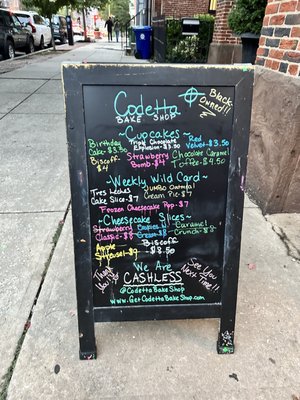 Codetta
BAKE SHOP
Black
owned!!
~Cupcakes~
Birthday Cake-$3.50
Triple Chocolate Explosion-$3.50
Red Velvet-$3.50
Biscoff $4
Strawberry Bomb-$4
Chocolate Caramel Toffee-$4.50
~Weekly Wild Card~
Tres Leches Cake Slice-$7
JUMBO Oatmeal Cream Pie-$7
Frozen Cheesecake Pop-$7
~Cheesecake Slices~
Strawberry Classic-$8
Cookies N Cream-$8
Caramel Crunch-$8
Apple
$9
Biscoff
$8.50
Thank you!!
We Are
CASHLESS
See You Next Time!!
@CodettaBakeShop
www.GetCodettaBakeShop.com